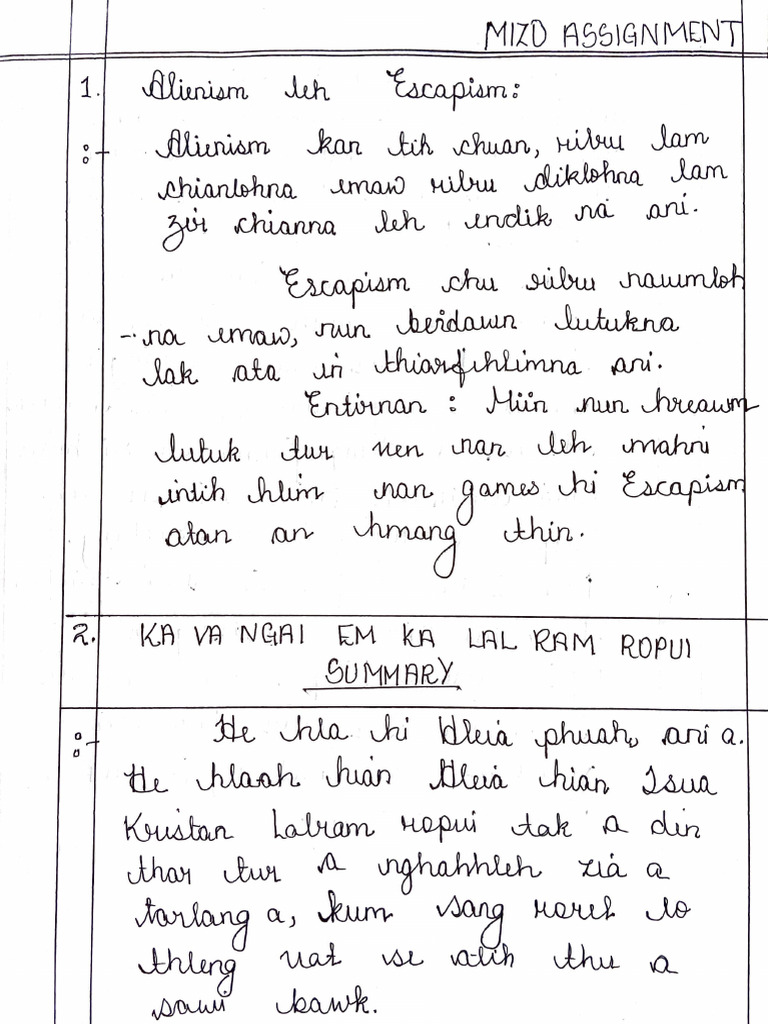 MIZO ASSIGNMENT
1. Alienism leh Escapism:
:- Alienism kan tih chuan, rilru lam
chianlohna emaw rilru diklohna lam
zir chianna leh endik na ani.
Escapism chu rilru nawmloh
-na emaw, nun beidawn lutukna
lak ata in thiarfihlimna ani.
Entirnan : Miin nun hreawm
lutuk tur ven nan leh mahni
intih hlim nan games hi Escapism
atan an hmang thin.
2. KA VA NGAI EM KA LAL RAM ROPUI
SUMMARY
:- He hla hi Hleia phuah ani a.
He hlaah hian Hleia hian Isua
Kristan Lalram ropui tak a din
thar tur a nghahhleh zia a
tarlang a, kum sang rorel lo
thleng vat se atih thu a
sawi bawk.